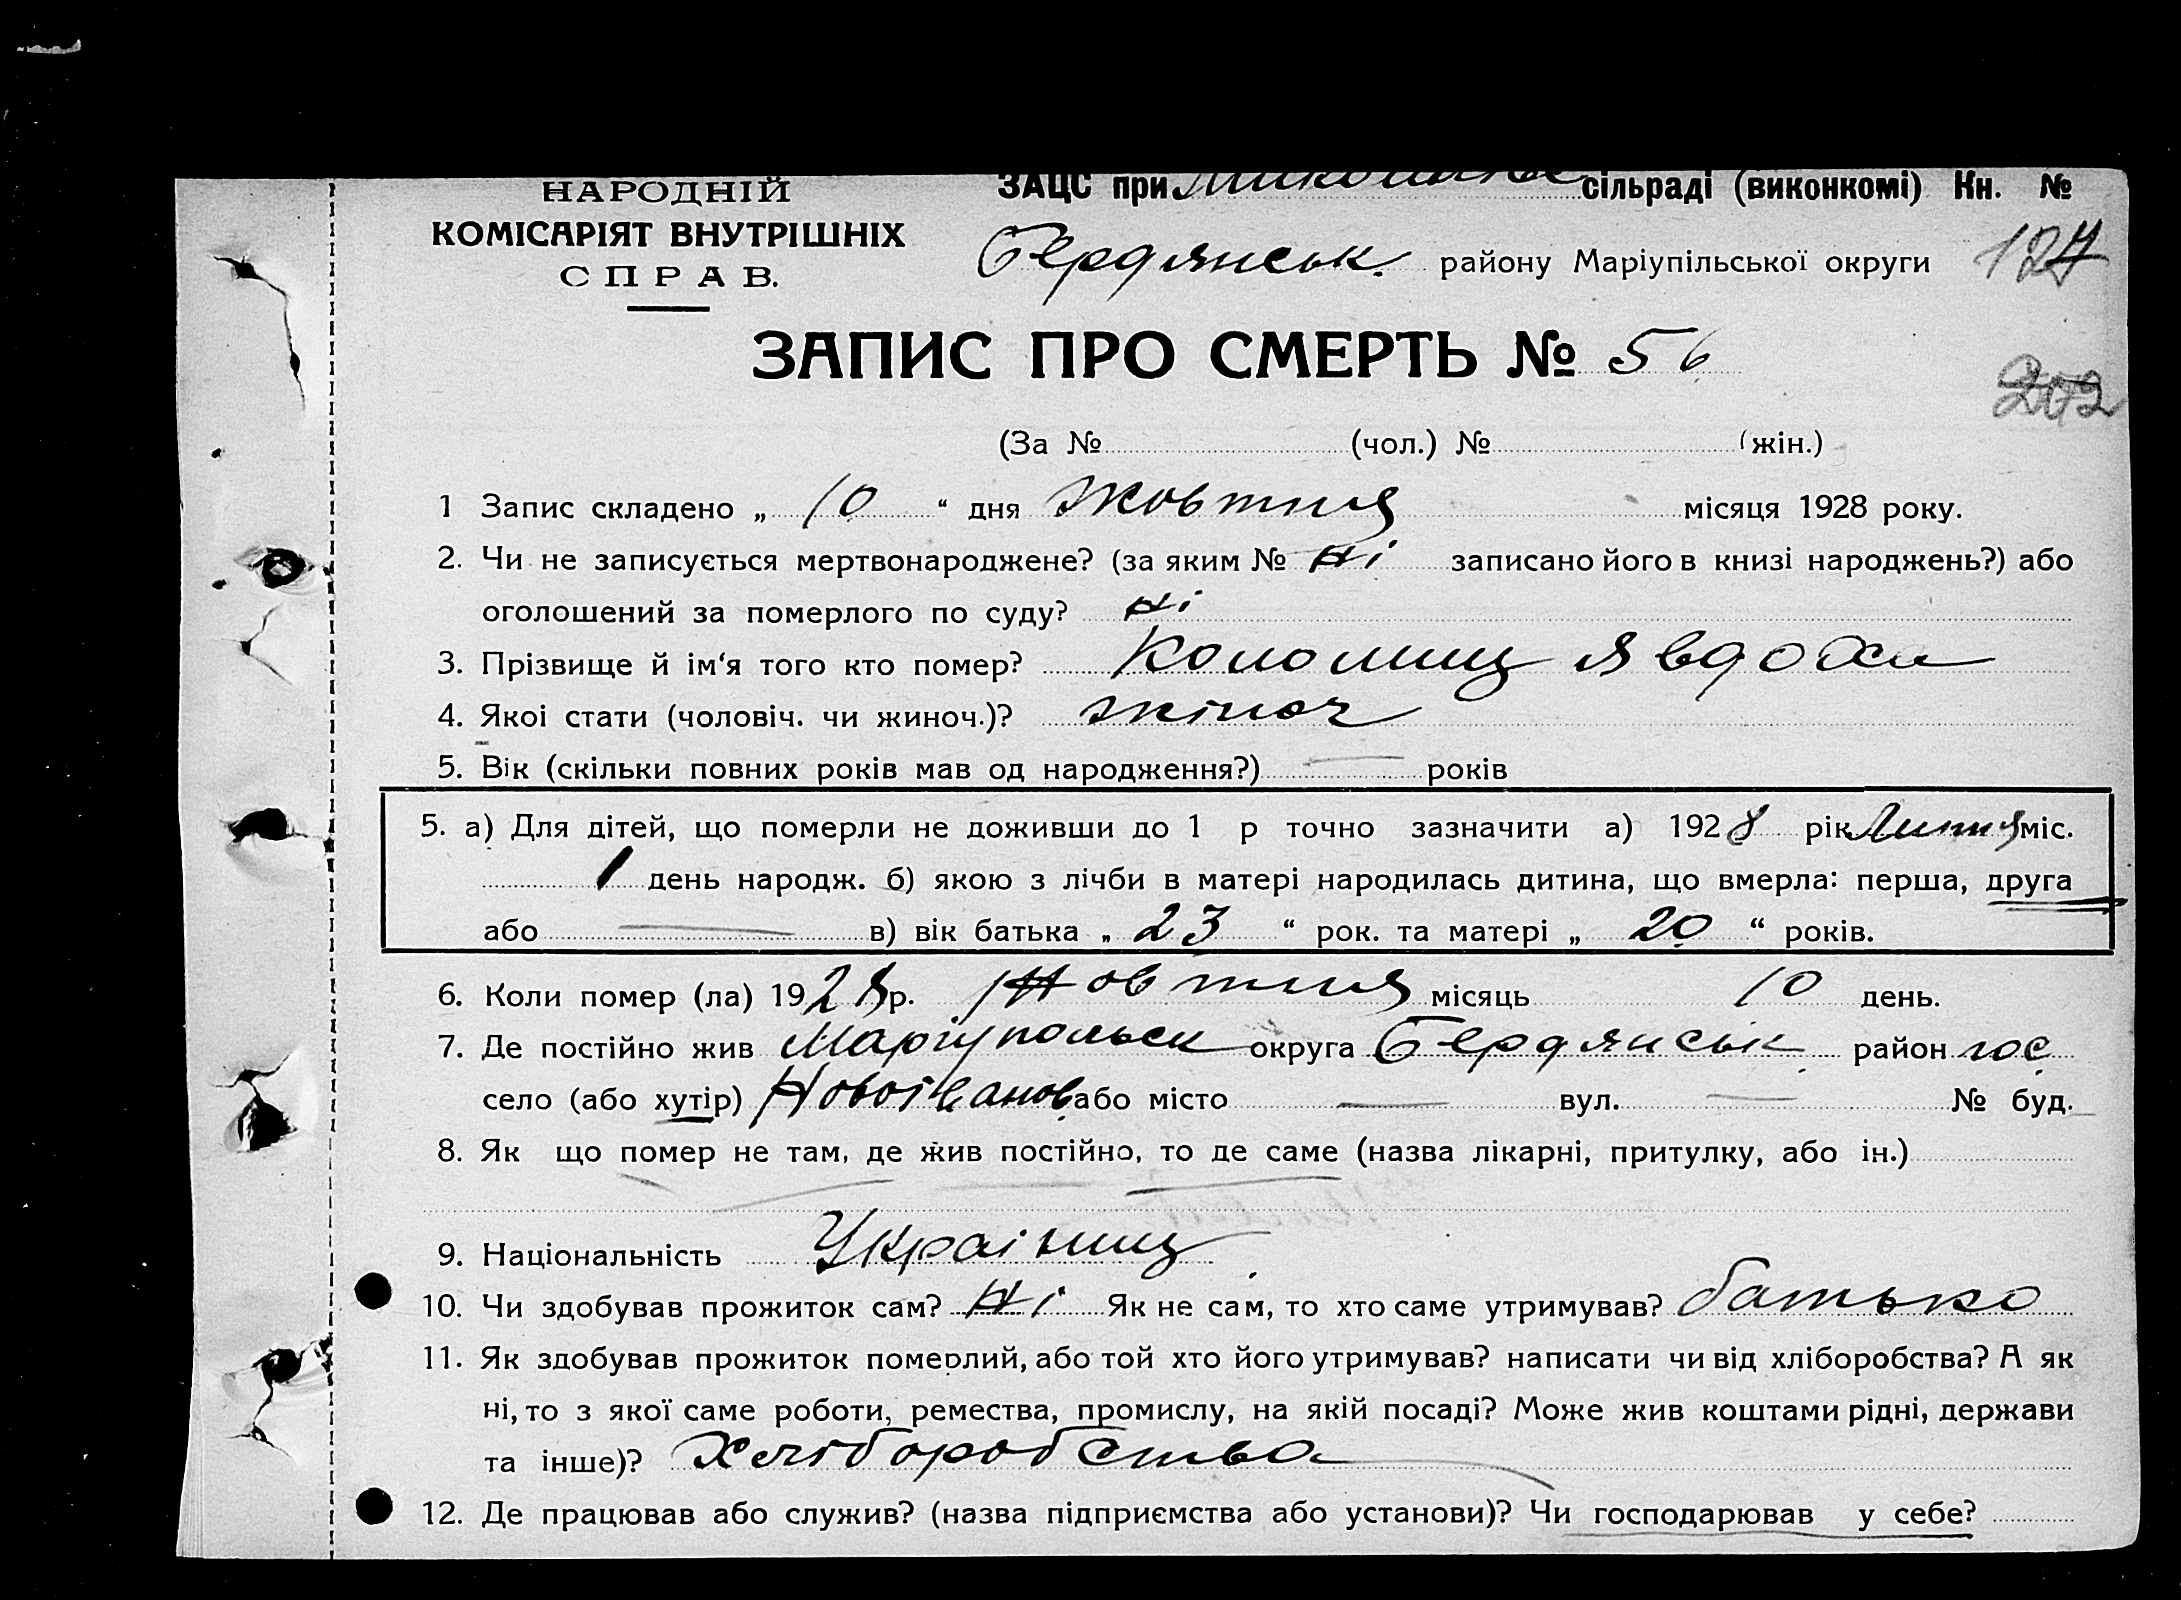 НАРОДНІЙ
КОМІСАРІЯТ ВНУТРІШНІХ
СПРАВ.
ЗАЦС при сільраді (виконкомі) Кн. №
Бердянськ. району Маріупільської округи 127
ЗАПИС ПРО СМЕРТЬ № 56
202
(За № (чол.) № (жін.)
1 Запис складено „ 10 “ дня жовтня місяця 1928 року.
2. Чи не записується мертвонароджене? (за яким № Ні записано його в книзі народжень?) або
оголошений за померлого по суду? Ні
3. Прізвище й ім‘я того кто помер? Коломиц Явдоха
4. Якоі стати (чоловіч. чи жиноч.)? жіноч
5. Вік (скільки повних років мав од народження?) — років
5. а) Для дітей, що померли не доживши до 1 р точно зазначити а) 1928 рік Липня міс.
1 день народж. б) якою з лічби в матері народилась дитина, що вмерла: перша, друга
або — в) вік батька „ 23 “ рок. та матері „ 20 “ років.
6. Коли помер (ла) 1928 р. Жовтня місяць 10 день.
7. Де постійно жив Маріупольськ округа Бердянськ. район
село (або хутір) Новоіванов. або місто — вул. — № буд.
8. Як що помер не там, де жив постійно, то де саме (назва лікарні, притулку, або ін.)
9. Національність Украіниц
10. Чи здобував прожиток сам? Ні Як не сам, то хто саме утримував? батько
11. Як здобував прожиток померлий, або той хто його утримував? написати чи від хліборобства? А як
ні, то з якої саме роботи, ремества, промислу, на якій посаді? Може жив коштами рідні, держави
та інше)? Хліборобства
12. Де працював або служив? (назва підприємства або установи)? Чи господарював у себе?